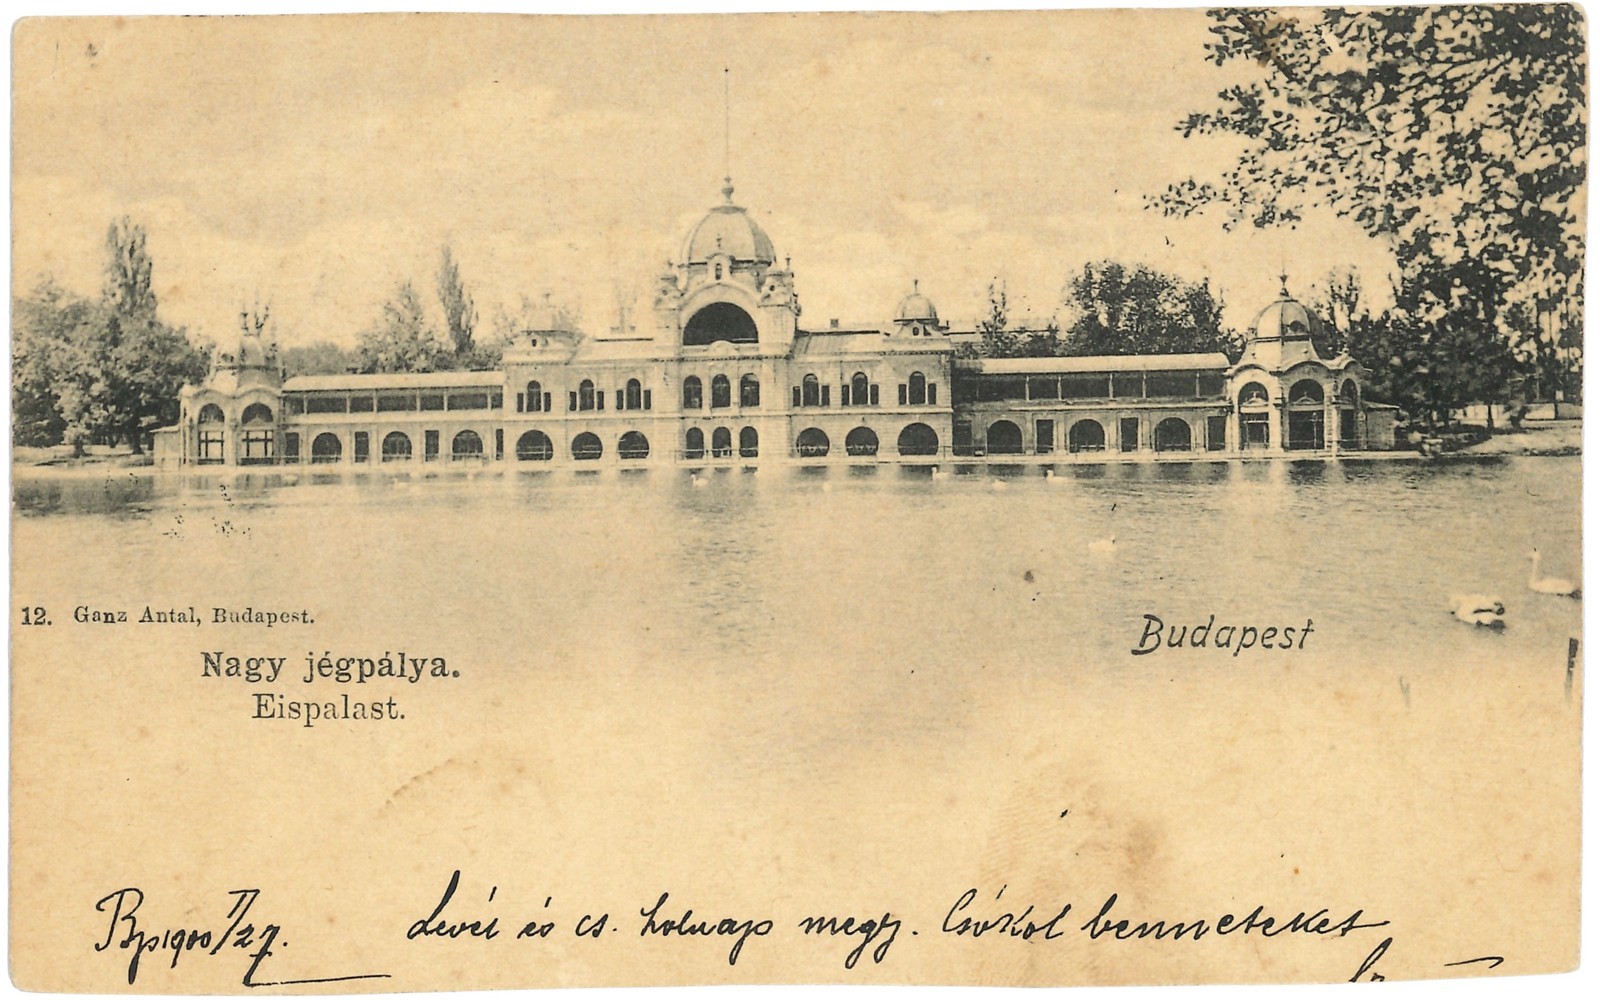 12. Ganz Antal, Budapest.
Nagy jégpálya.
Eispalast.
Budapest
Bp 1900 V/27. Levél és cs. holnap megy. Csókol benneteket